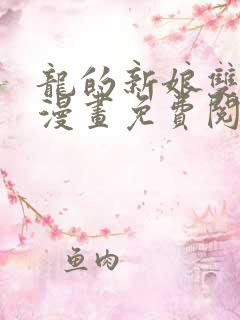 龍的新娘雙
漫畫免費閱
鱼肉